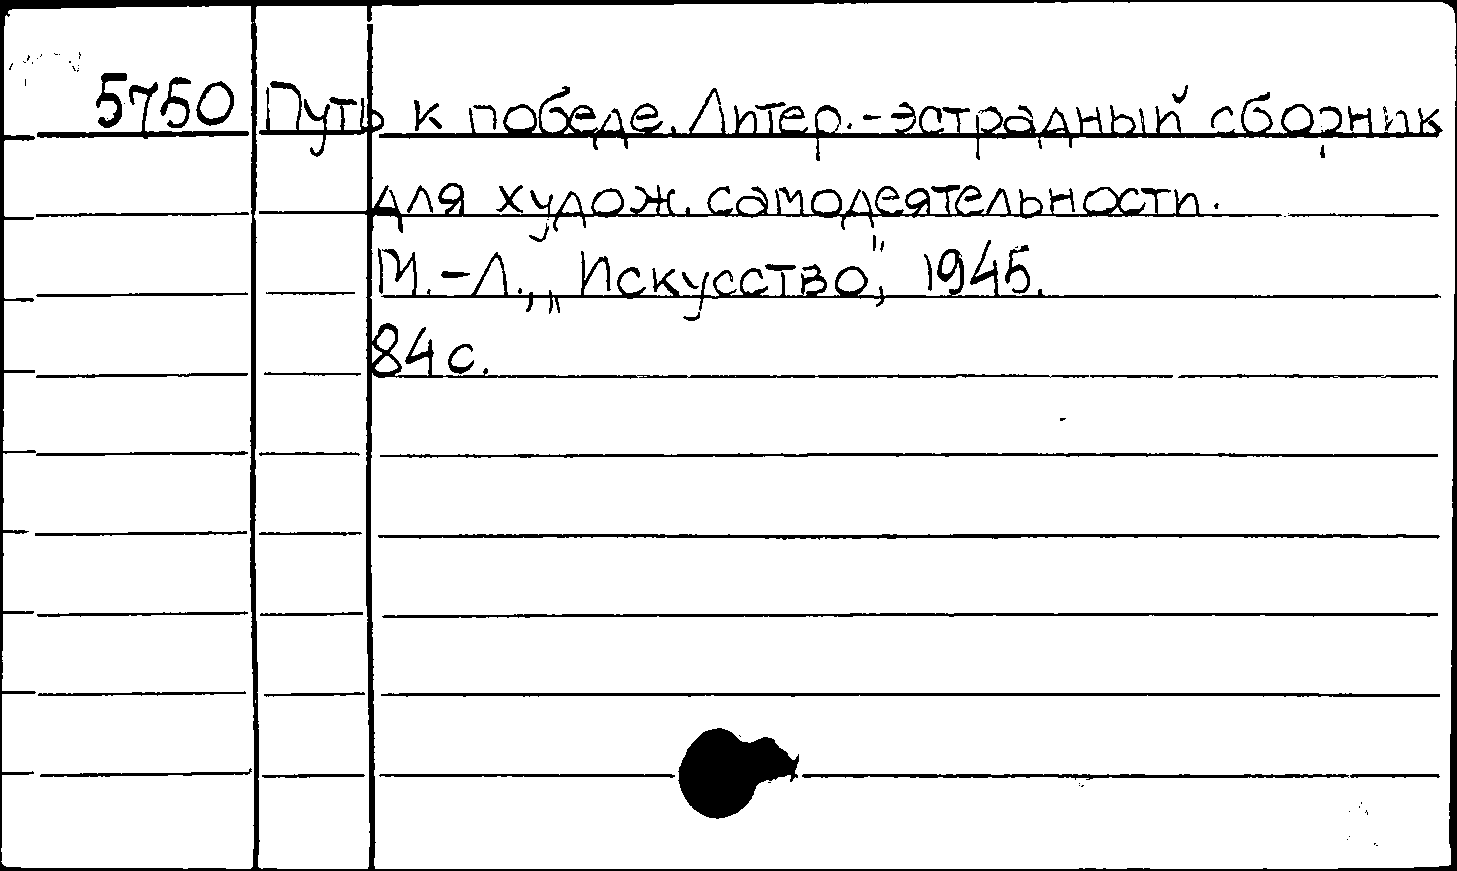 5750 Путь к победе. Литер.-эстрадный сборник
для худож. самодеятельности.
М.-Л., „Искусство", 1945.
84 с.